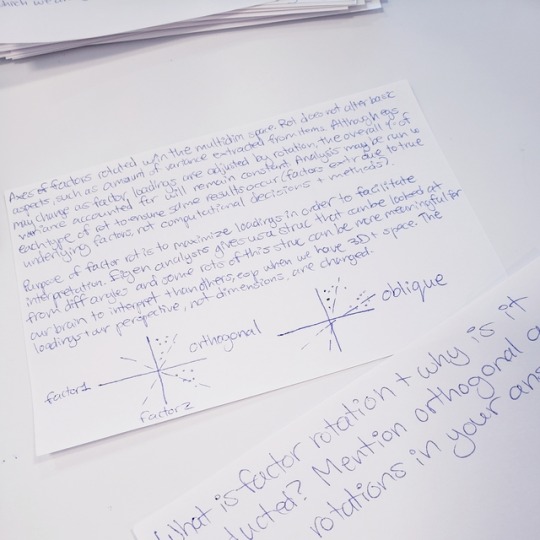 which we
Axes of factors rotated w/in the multidim space. Rot does not alter basic
aspects, such as amount of variance extracted from items. Although egs
may change as factor loadings are adjusted by rotation, the overall % of
variance accounted for will remain constant. Analysis may be run w
each type of rot to ensure same results occur (factors extr due to true
underlying factors, not computational decisions + methods).
Purpose of factor rot is to maximize loadings in order to facilitate
interpretation. Eigen analysis gives us a struc that can be looked at
from diff angles and some rots of this struc can be more meaningful for
our brain to interpret than others, esp when we have 3D+ space. The
loadings + our perspective, not dimensions, are changed.
orthogonal
oblique
factor1
factor2
What is factor rotation + why is it
ducted? Mention orthogonal a
rotations in your ans